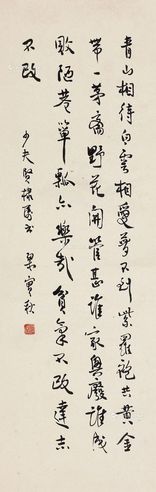 青山相待白雲相愛夢不到紫羅袍共黃金
帶一茅齋野花開管甚誰家興廢誰成
敗陋巷簞瓢亦樂哉貧氣不改達志
不改
少夫賢棣屬書
梁實秋